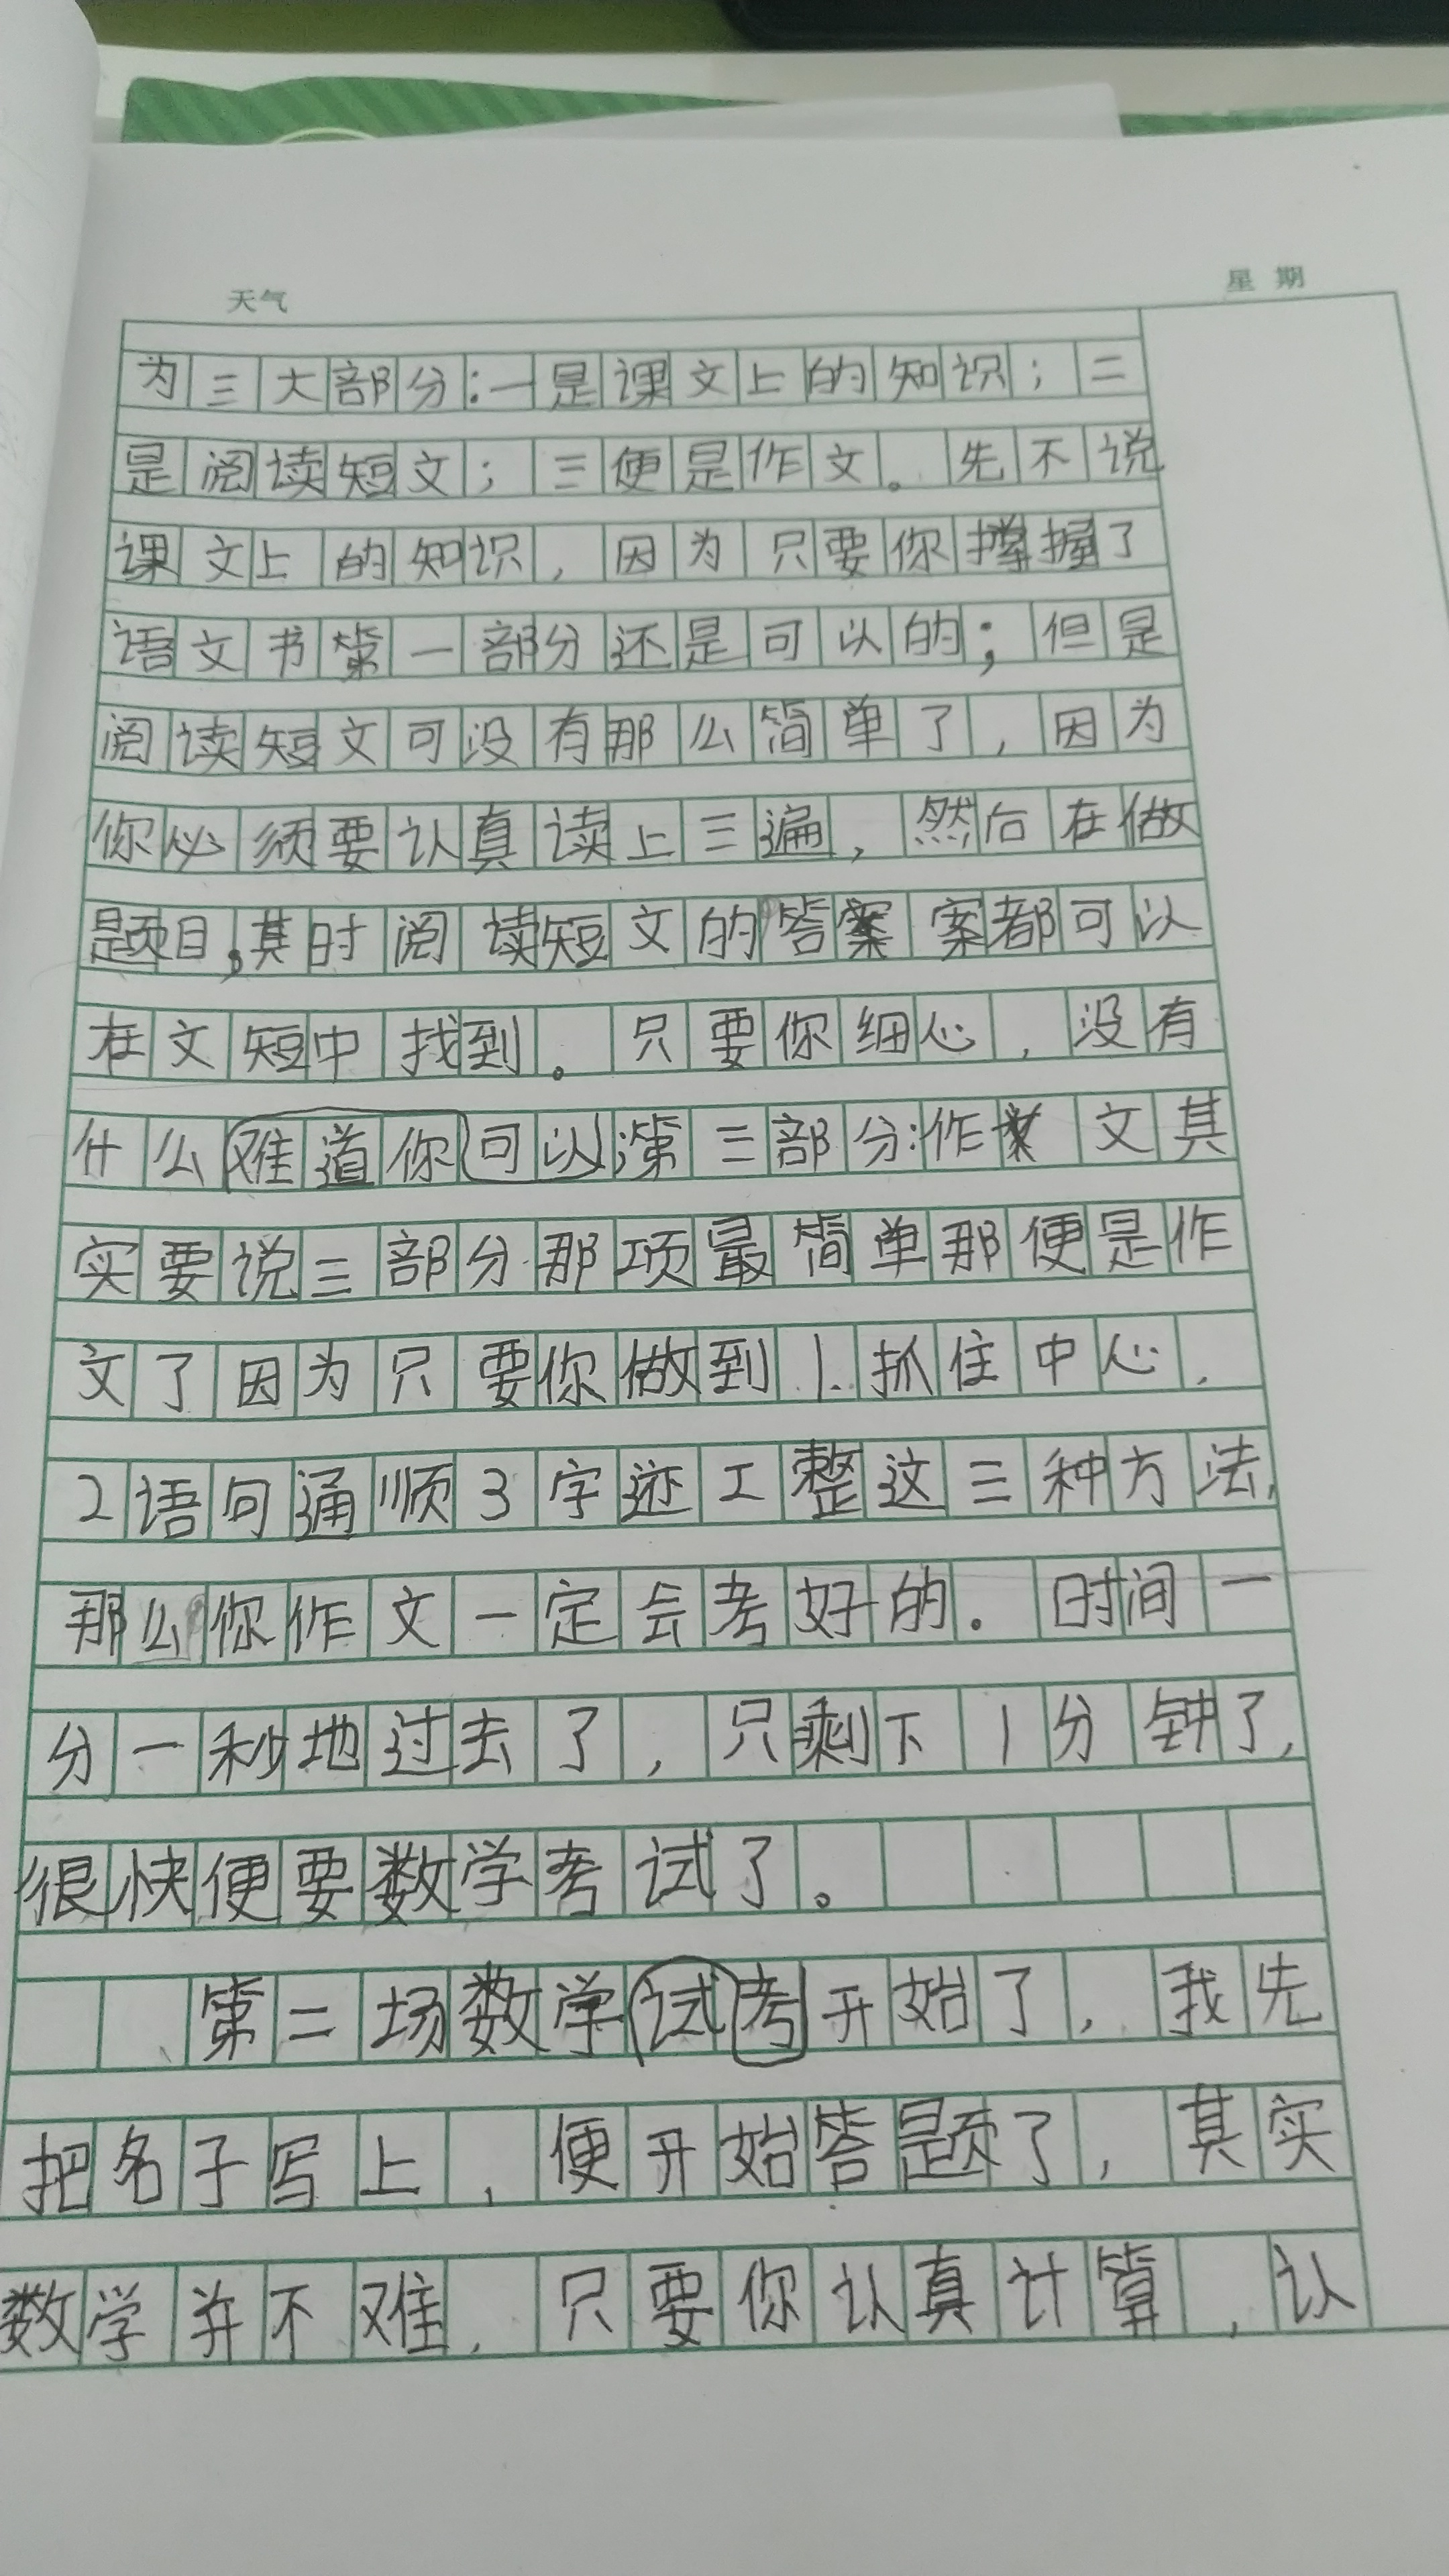 天气 星期
为三大部分:一是课文上的知识;二
是阅读短文;三便是作文。先不说
课文上的知识,因为只要你撑握了
语文书第一部分还是可以的;但是
阅读短文可没有那么简单了,因为
你必须要认真读上三遍,然后在做
题目,其时阅读短文的答案都可以
在文短中找到。只要你细心,没有
什么难道你可以;第三部分:作文其
实要说三部分那项最简单那便是作
文了因为只要你做到1.抓住中心,
2语句通顺3字迹工整这三种方法,
那么你作文一定会考好的。时间一
分一秒地过去了,只剩下1分钟了,
很快便要数学考试了。
第二场数学试考开始了,我先
把名子写上,便开始答题了,其实
数学并不难,只要你认真计算,认